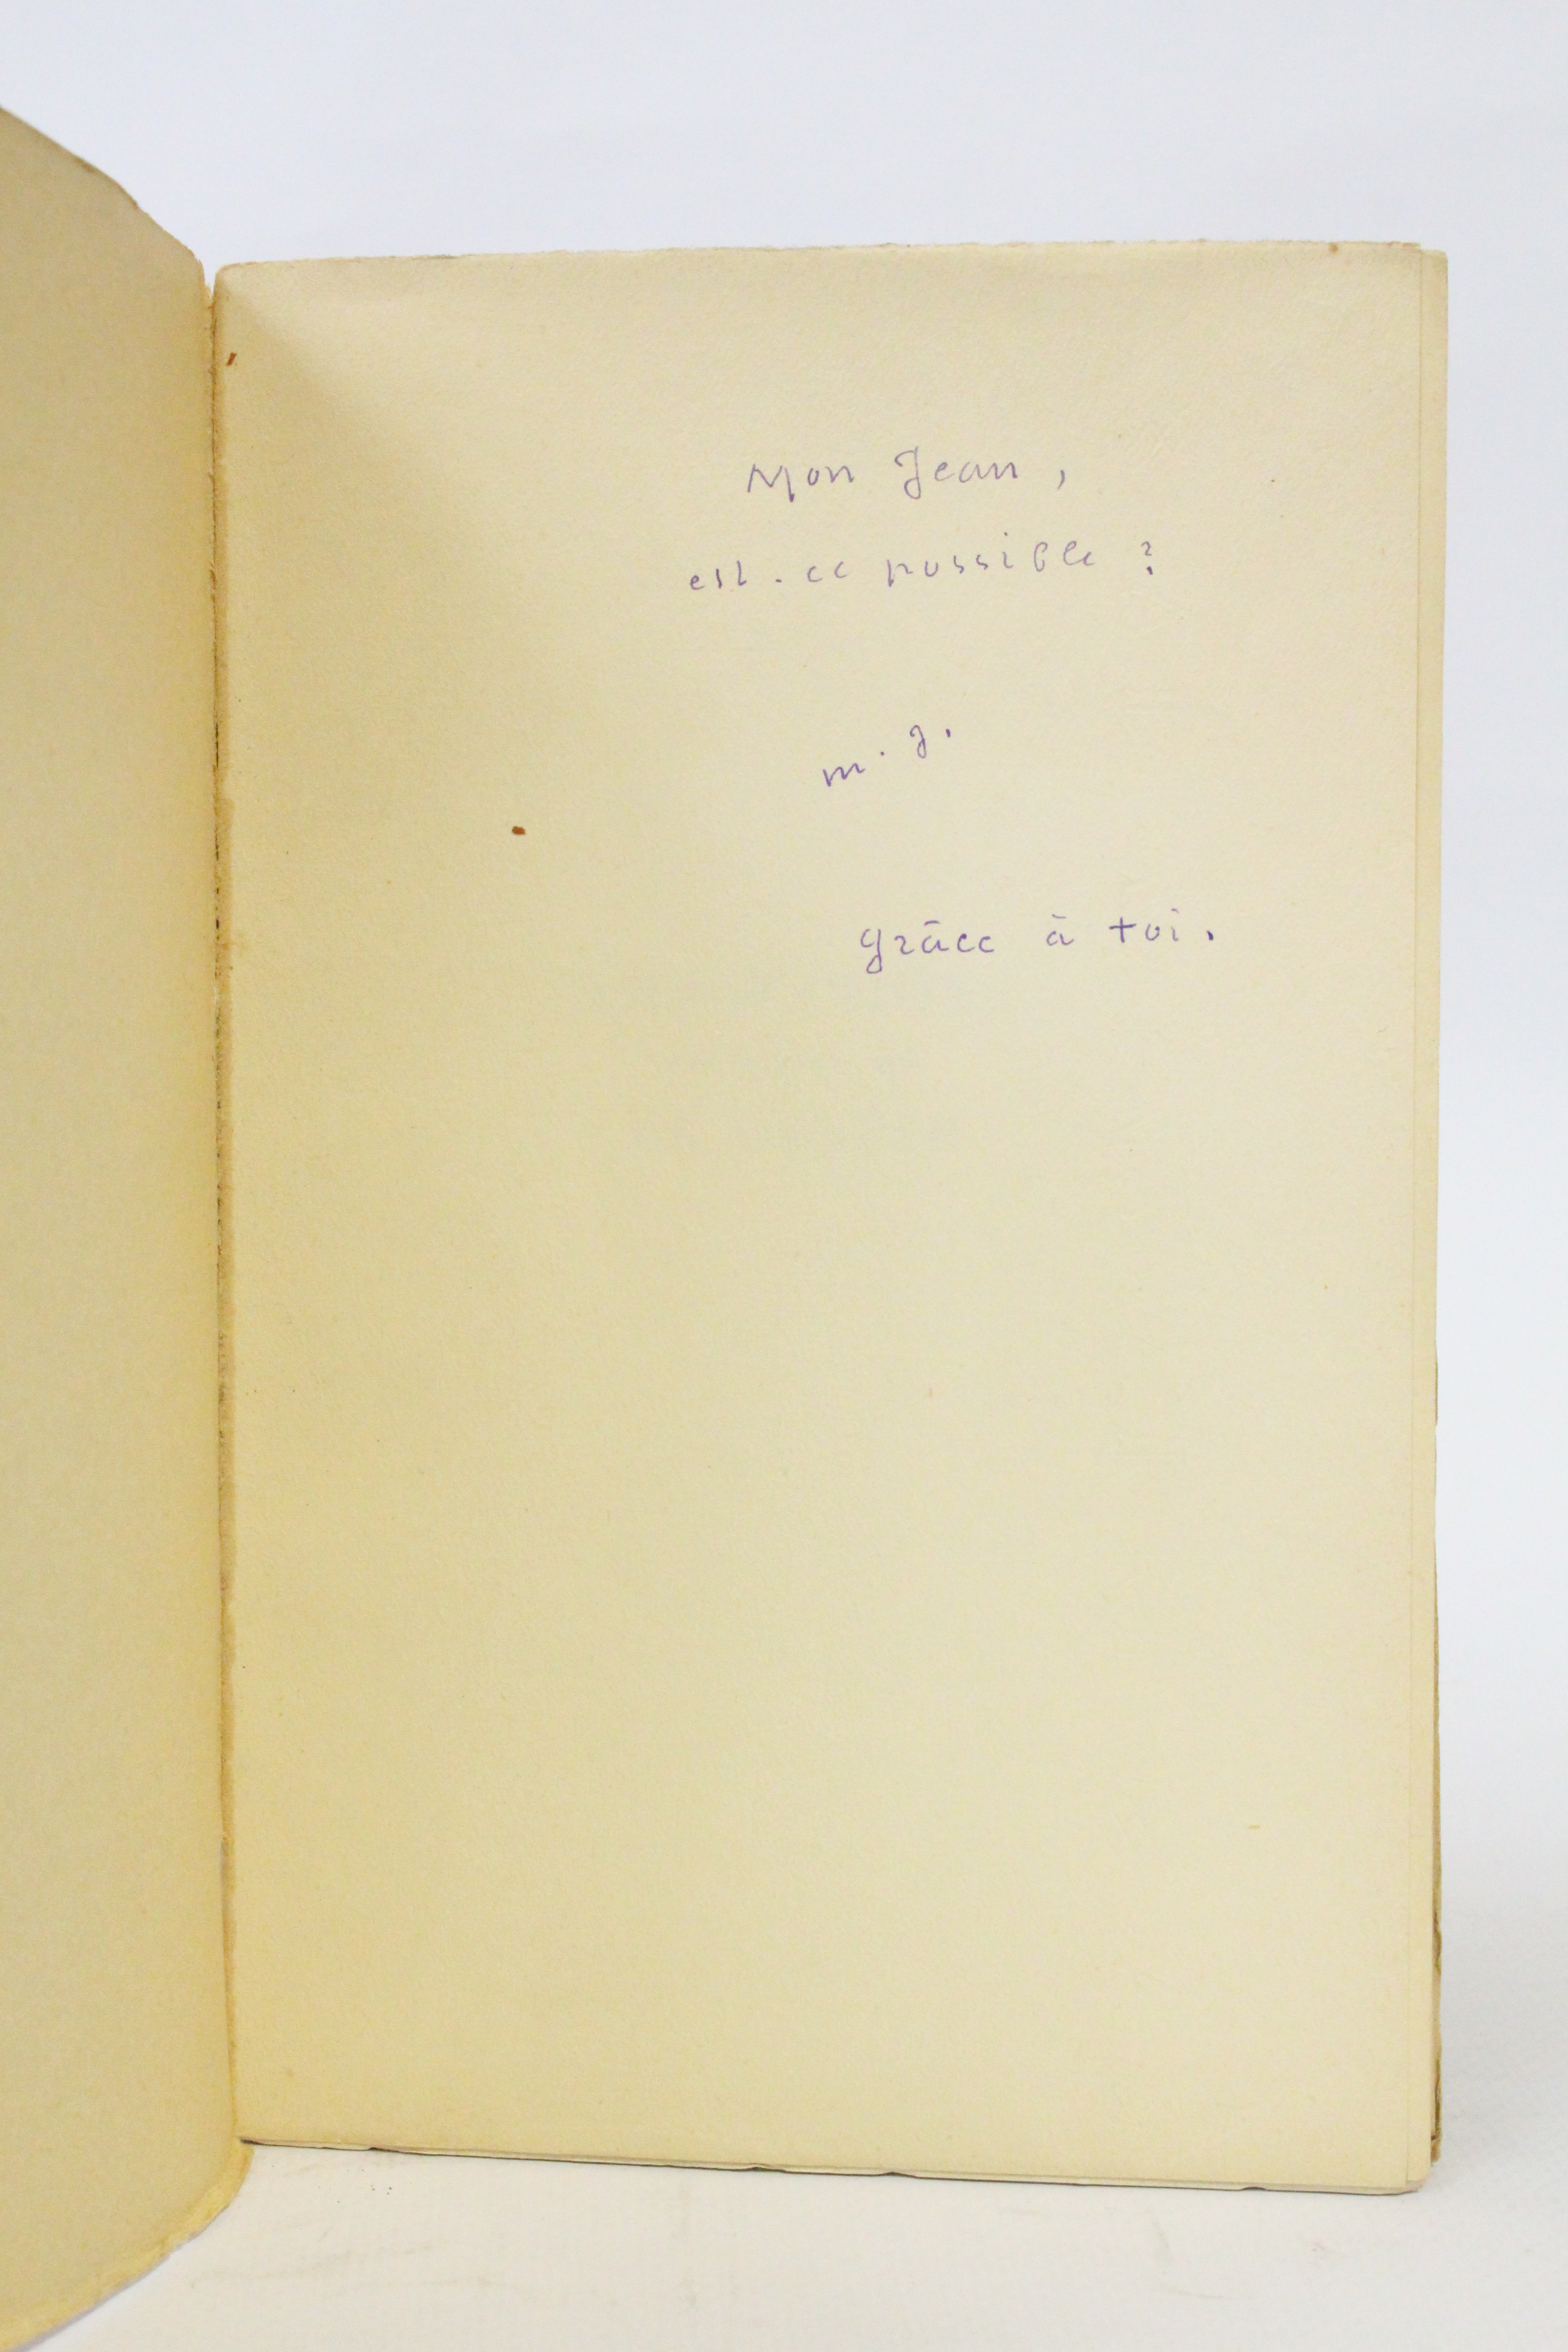 Mon Jean,
est-ce possible ?
m. J.
Grâce à toi.